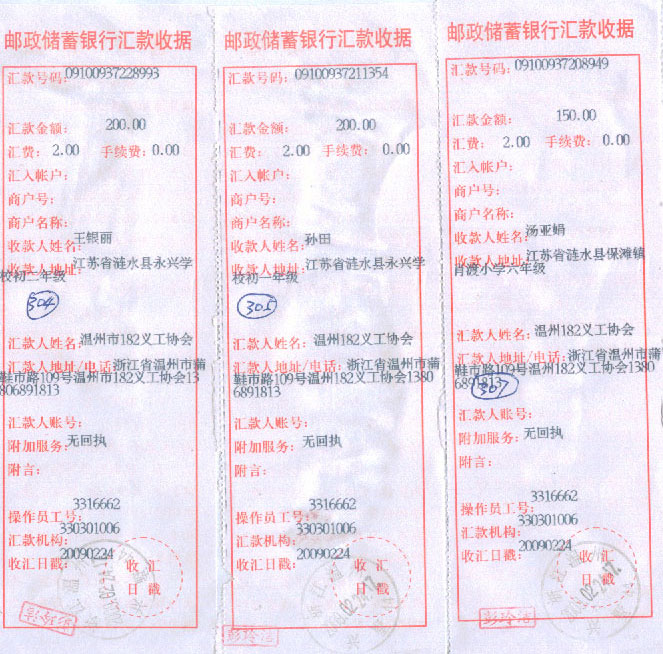 邮政储蓄银行汇款收据
汇款号码：09100937228993
汇款金额：200.00
汇费：2.00 手续费：0.00
汇入帐户：
商户号：
商户名称：
收款人姓名：王银丽
收款人地址：江苏省涟水县永兴学
校初二年级
304
汇款人姓名：温州市182义工协会
汇款人地址/电话：浙江省温州市蒲
鞋市路109号温州市182义工协会13
806891813
汇款人账号：
附加服务：无回执
附言：
操作员工号：3316662
汇款机构：330301006
收汇日戳：20090224
收汇
日戳
邮政储蓄银行汇款收据
汇款号码：09100937211354
汇款金额：200.00
汇费：2.00 手续费：0.00
汇入帐户：
商户号：
商户名称：
收款人姓名：孙田
收款人地址：江苏省涟水县永兴学
校初一年级
305
汇款人姓名：温州182义工协会
汇款人地址/电话：浙江省温州市蒲
鞋市路109号温州182义工协会1380
6891813
汇款人账号：
附加服务：无回执
附言：
操作员工号：3316662
汇款机构：330301006
收汇日戳：20090224
收汇
日戳
邮政储蓄银行汇款收据
汇款号码：09100937208949
汇款金额：150.00
汇费：2.00 手续费：0.00
汇入帐户：
商户号：
商户名称：
收款人姓名：汤亚娟
收款人地址：江苏省涟水县保滩镇
肖渡小学六年级
汇款人姓名：温州182义工协会
汇款人地址/电话：浙江省温州市蒲
鞋市路109号温州182义工协会1380
6891813
307
汇款人账号：
附加服务：无回执
附言：
操作员工号：3316662
汇款机构：330301006
收汇日戳：20090224
收汇
日戳